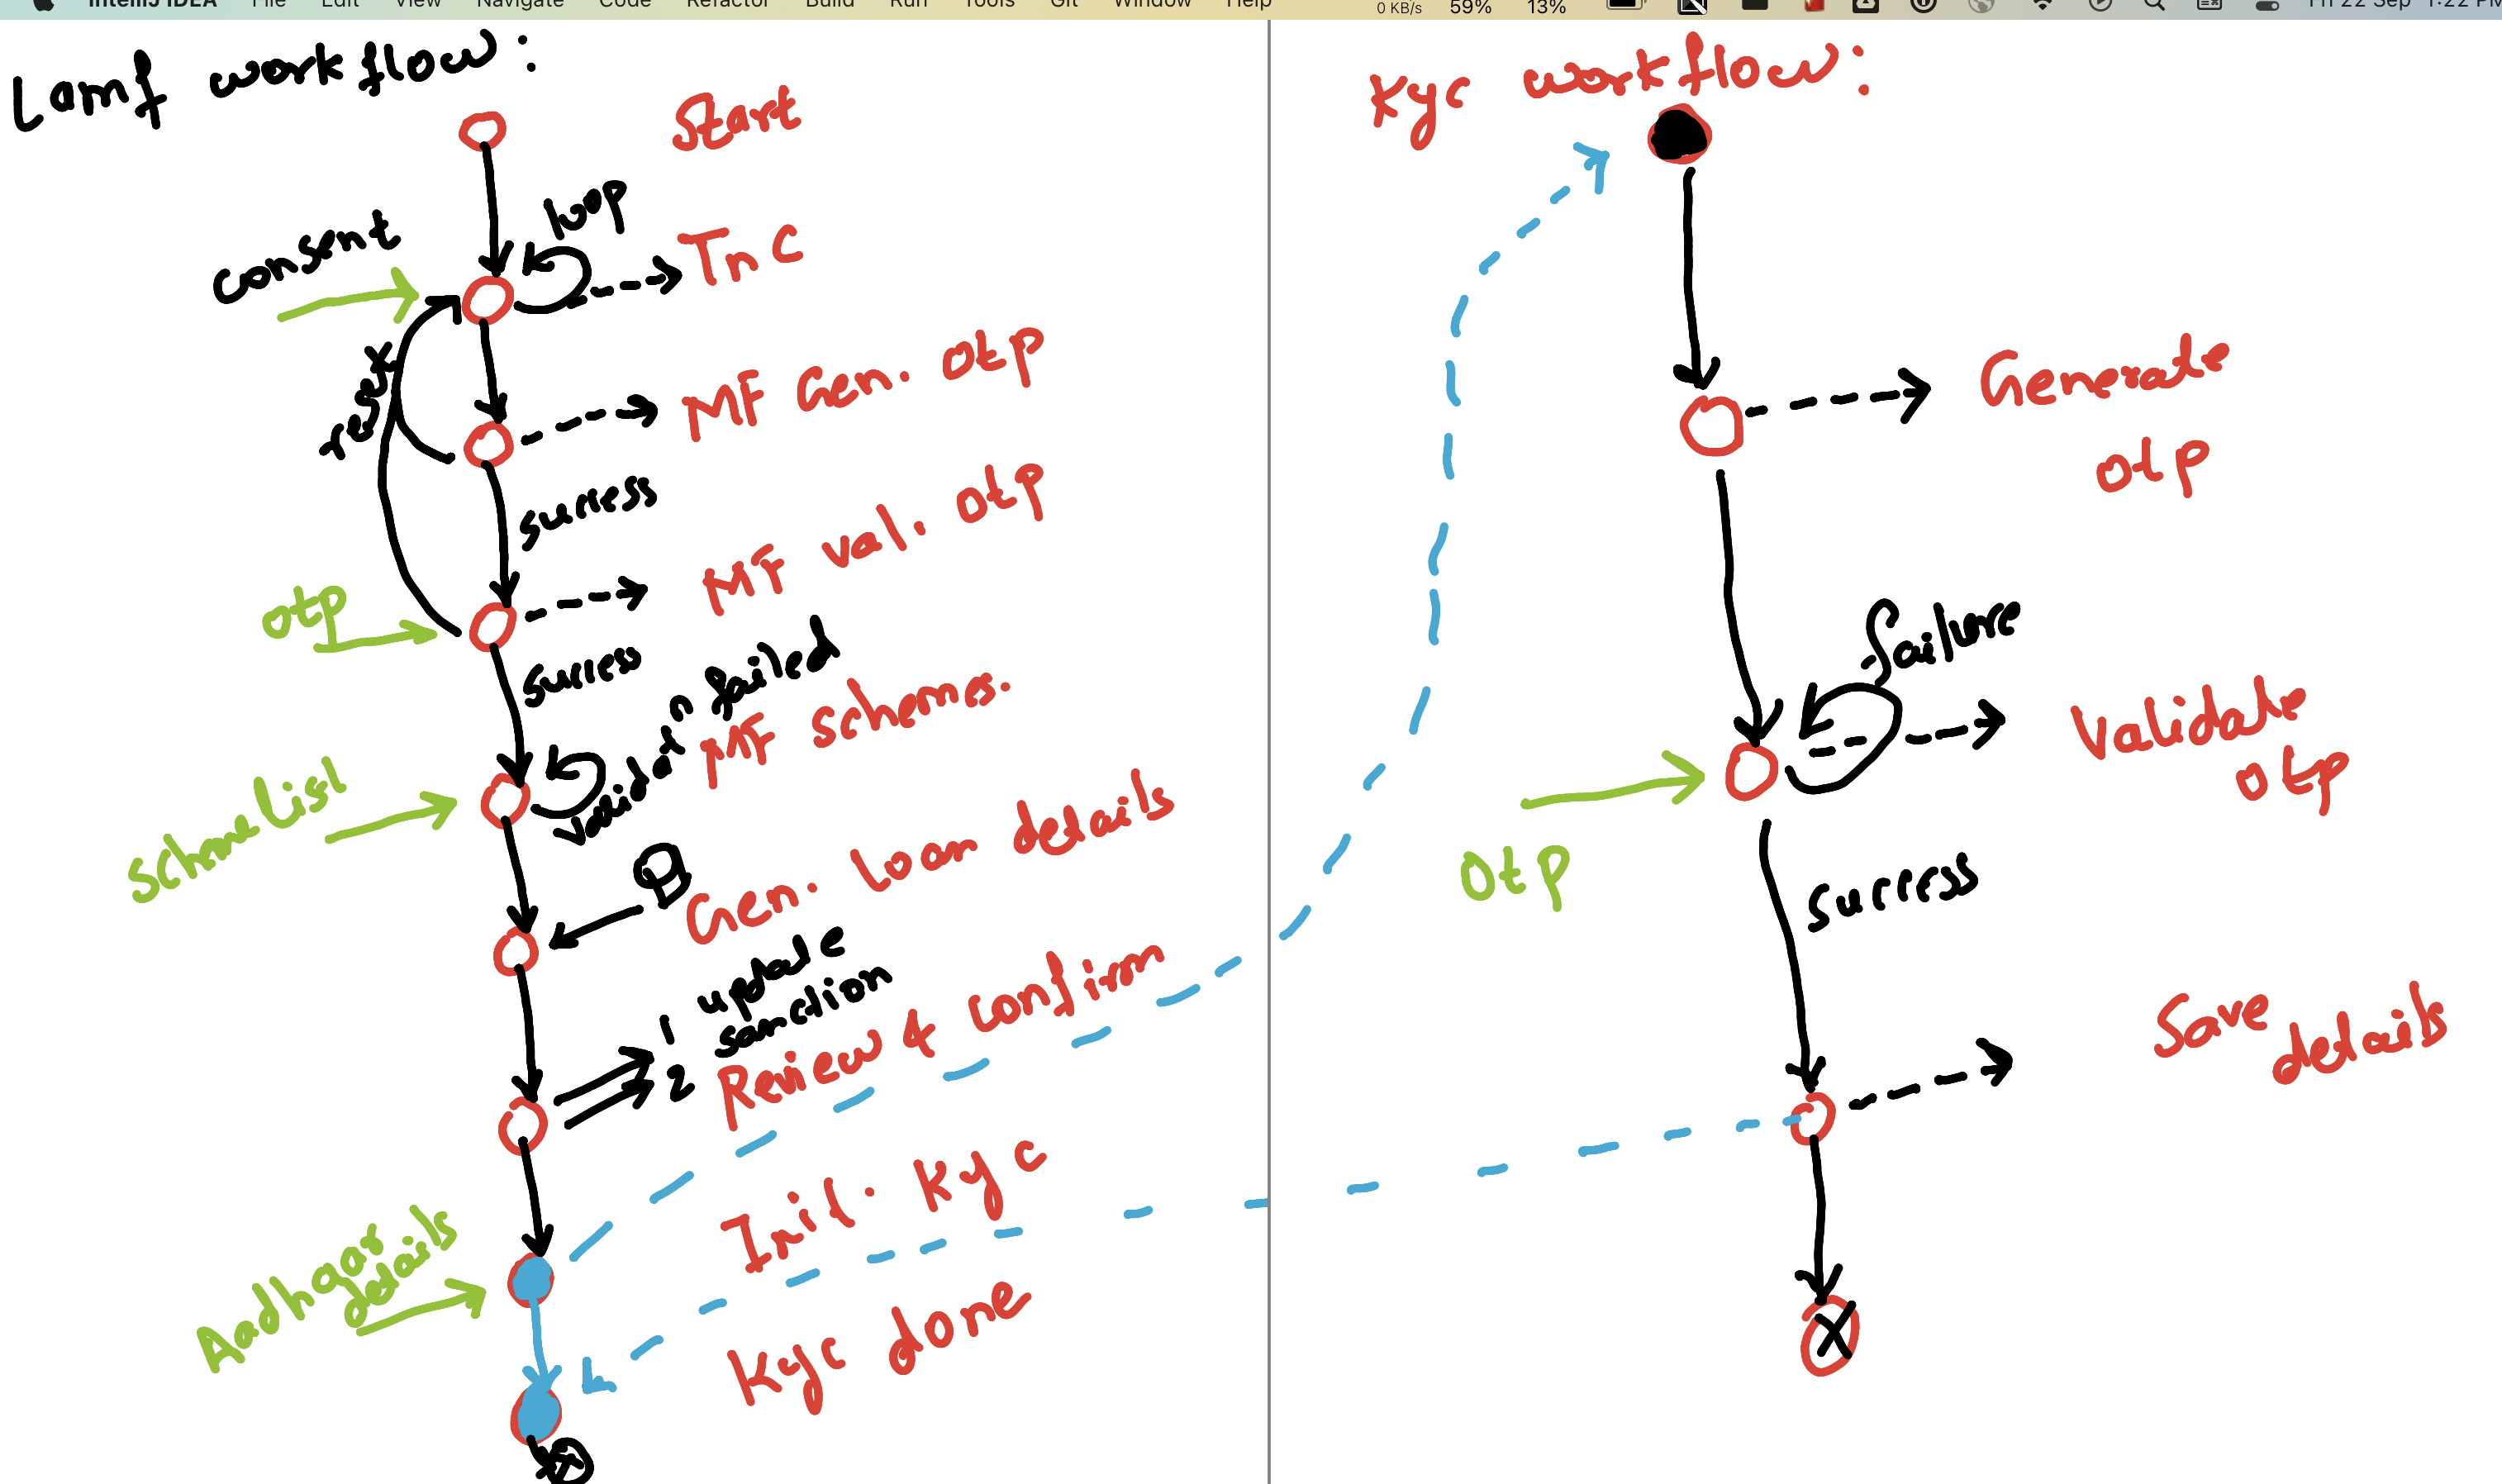 IntelliJ IDEA File Edit View Navigate Code Refactor Build Run Tools Git Window Help 0 KB/s 59% 13% Fri 22 Sep 1:22 PM
Lamf workflow:
Start
loop
consent
TnC
reset
MF Gen. otp
success
MF val. otp
otp
success
validatn failed
MF schemes.
Scheme List
Gen. Loan details
1 update sanction
2
Review & confirm
Init. Kyc
Aadhaar details
Kyc done
Kyc workflow:
Generate
otp
failure
Validate
otp
Otp
success
Save
details